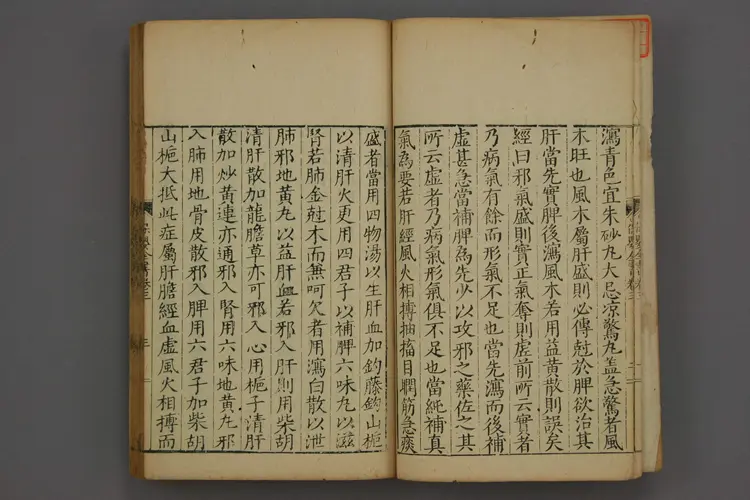 瀉青邑宜朱砂丸大忌凉驚丸盖急驚者風
木旺也風木屬肝盛則必傳尅於脾欲治其
肝當先實脾後瀉風木若用益黄散則誤矣
經曰邪氣盛則實正氣奪則虛前所云實者
乃病氣有餘而形氣不足也當先瀉而後補
虛甚急當補脾為先少以攻邪之藥佐之其
所云虛者乃病氣形氣俱不足也當純補真
氣為要若肝經風火相摶抽搐目瞤筋急痰
盛者當用四物湯以生肝血加釣藤鈎山梔
以清肝火更用四君子以補脾六味丸以滋
腎若肺金尅木而兼呵欠者用瀉白散以泄
肺邪地黄丸以益肝血若邪入肝則用柴胡
清肝散加龍膽草亦可邪入心用梔子清肝
散加炒黄連亦通邪入腎用六味地黄丸邪
入肺用地骨皮散邪入脾用六君子加柴胡
山梔大抵此症屬肝膽經血虛風火相摶而